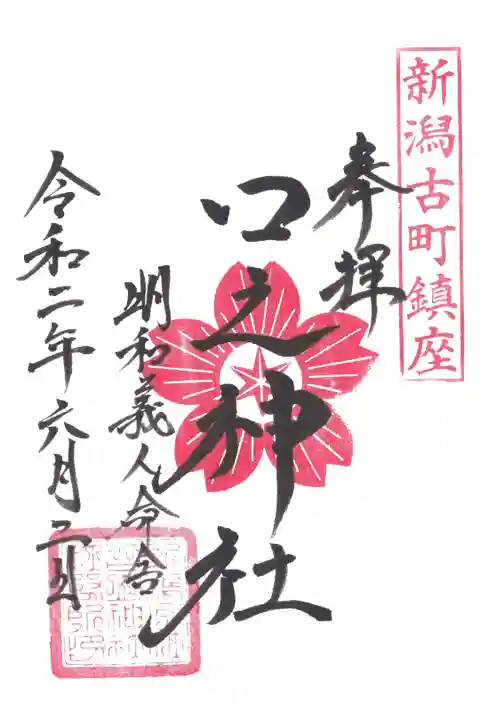 新潟古町鎮座
奉拝
口之神社
明和義人命合
令和二年六月二